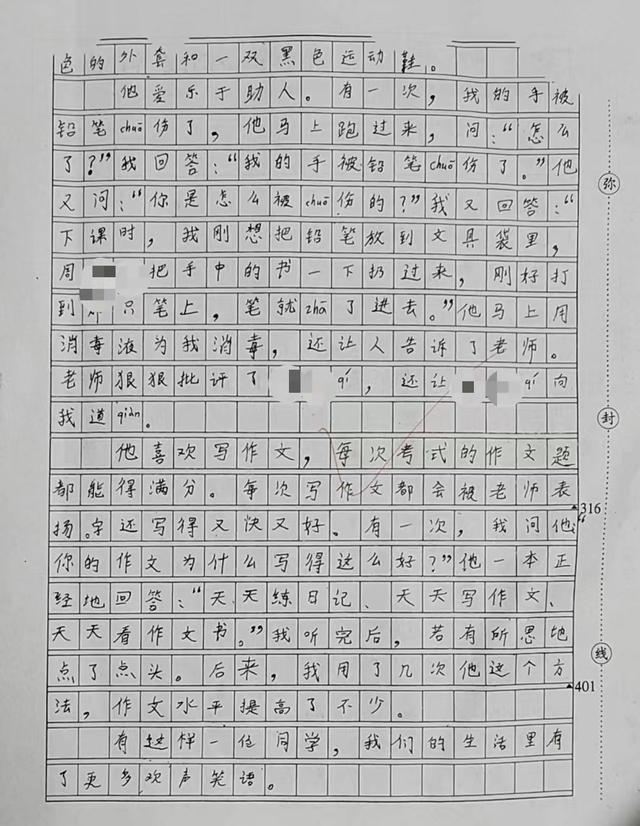 色的外套和一双黑色运动鞋。
他爱乐于助人。有一次，我的手被
铅笔chuō伤了，他马上跑过来，问：“怎么
了？”我回答：“我的手被铅笔chuō伤了。”他
又问：“你是怎么被chuō伤的？”我又回答：“
下课时，我刚想把铅笔放到文具袋里，
周 把手中的书一下扔过来，刚好打
到 只笔上，笔就zhā了进去。”他马上用
消毒液为我消毒，还让人告诉了老师。
老师狠狠批评了 qí，还让 qí向
我道qiàn。
他喜欢写作文，每次考式的作文题
都能得满分。每次写作文都会被老师表
扬。字还写得又快又好。有一次，我问他：“
你的作文为什么写得这么好？”他一本正
经地回答：“天天练日记、天天写作文、
天天看作文书。”我听完后，若有所思地
点了点头。后来，我用了几次他这个方
法，作文水平提高了不少。
有这样一位同学，我们的生活里有
了更多欢声笑语。
弥
封
线
316
401